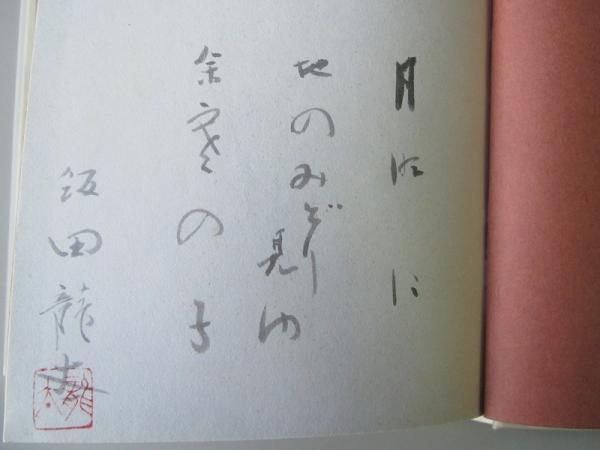 月明に
地のみどり見ゆ
余寒のち
飯田龍太